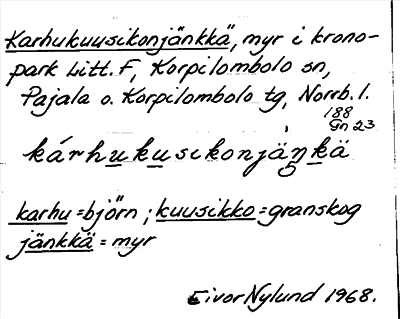 Karhukuusikonjänkkä, myr i krono-
park Litt. F, Korpilombolo sn,
Pajala o. Korpilombolo tg, Norrb. l.
188
Gn 23
kárhukusikonjäŋkä
karhu = björn ; kuusikko = granskog
jänkkä = myr
Eivor Nylund 1968.